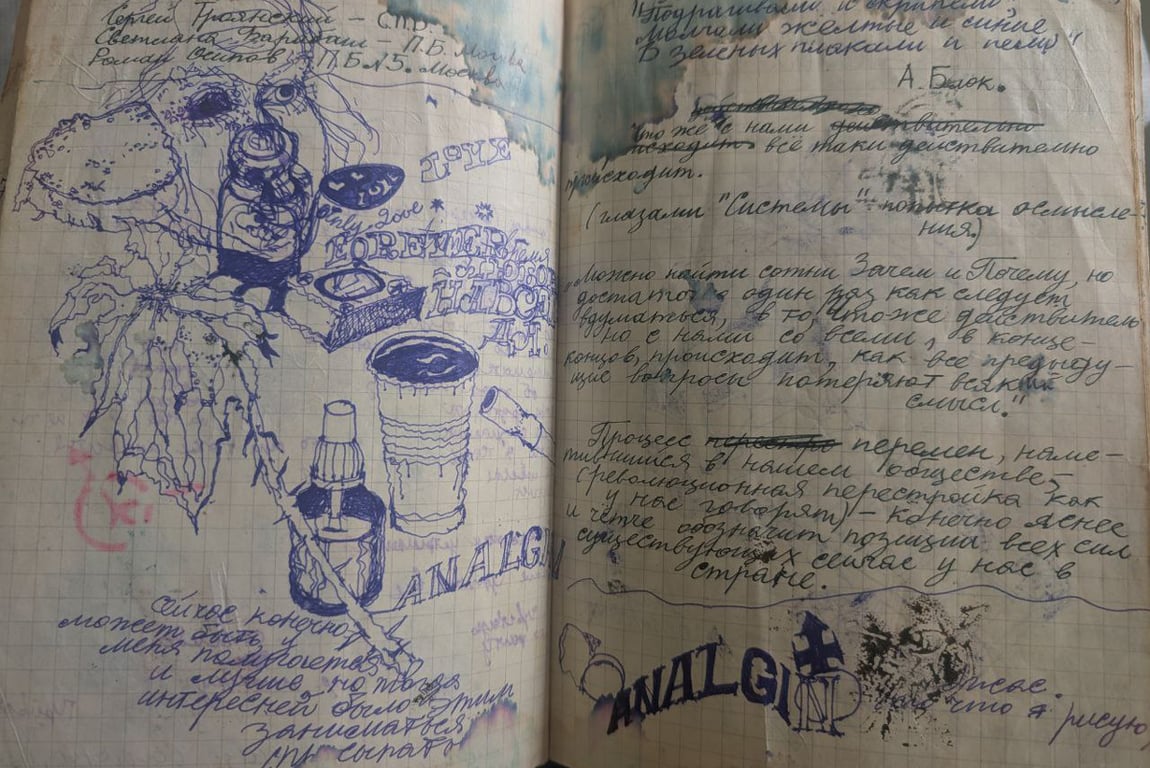 Сергей Троянский – СПБ.
Светлана
П.Б. Москва
Роман Осипов П.Б.№5. Москва
LOVE
Only Love
FOREVER
ЛЮБОВ
НАВСЕГ
ДА.
ANALGIN
сейчас конечно
может быть у
меня получается
и лучше но тогда
интересней было этим
заниматься
"Подрагивали и скрипели,
Молчали жёлтые и синие
В зелёных плакали и пели"
А. Блок.
Что же с нами действительно
происходит всё таки действительно
происходит.
(глазами "Системы" попытка осмысле-
ния.)
„Можно найти сотни Зачем и Почему, но
достаточно один раз как следует
вдуматься, в то, что же действитель
но с нами со всеми, в конце-
концов, происходит, как все предыду-
щие вопросы потеряют всякий
смысл."
Процесс перемен, наме-
тившийся в нашем обществе,
(революционная перестройка как
у нас говорят) – конечно яснее
и чётче обозначит позиции всех сил
существующих сейчас у нас в
стране.
ANALGIN
что я рисую